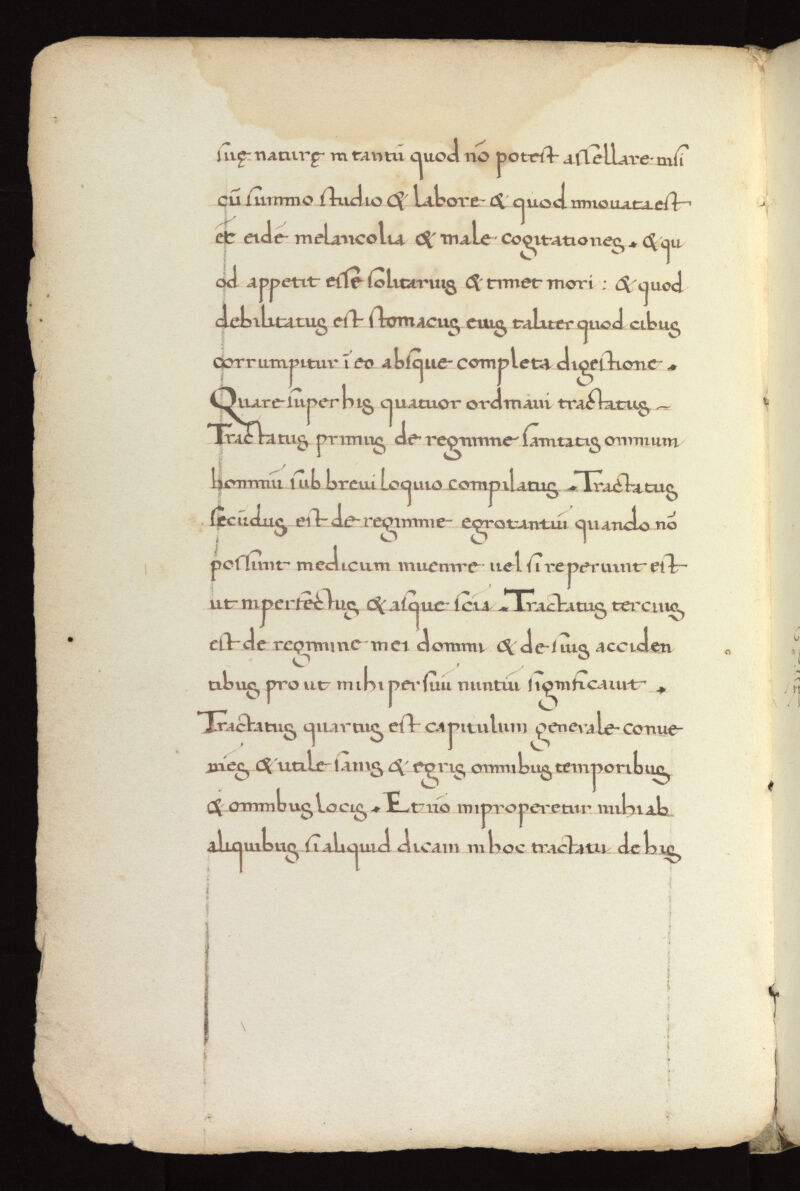 suę naturę in tantū quod nō potest assellare nisi
cū summo studio & labore & quod innouata est
et eidē melancolia & male cogitationes. & qu
od appetit esse solitarius & timet mori: & quod
debilitatus est stomacus eius taliter quod cibus
corrumpitur ī eo absque completa digestione.
Quare super his quatuor ordinaui tractatus
Tractatus primus de regimine sanitatis omnium
hominū sub breui loquio compilatus. Tractatus
secūdus est de regimine egrotantiū quando nō
possunt medicum inuenire uel si reperiunt est
ut inperfectus & asque sciā. Tractatus tercius
est de regimine mei domini & de suis acciden
tibus pro ut mihi per suū nuntiū significauit.
Tractatus quartus est capitulum generale conue
niēs & utile sanis & egris omnibus temporibus
& omnibus locis. Et nō inproperetur mihi ab
aliquibus si aliquid dicam in hoc tractatu de his